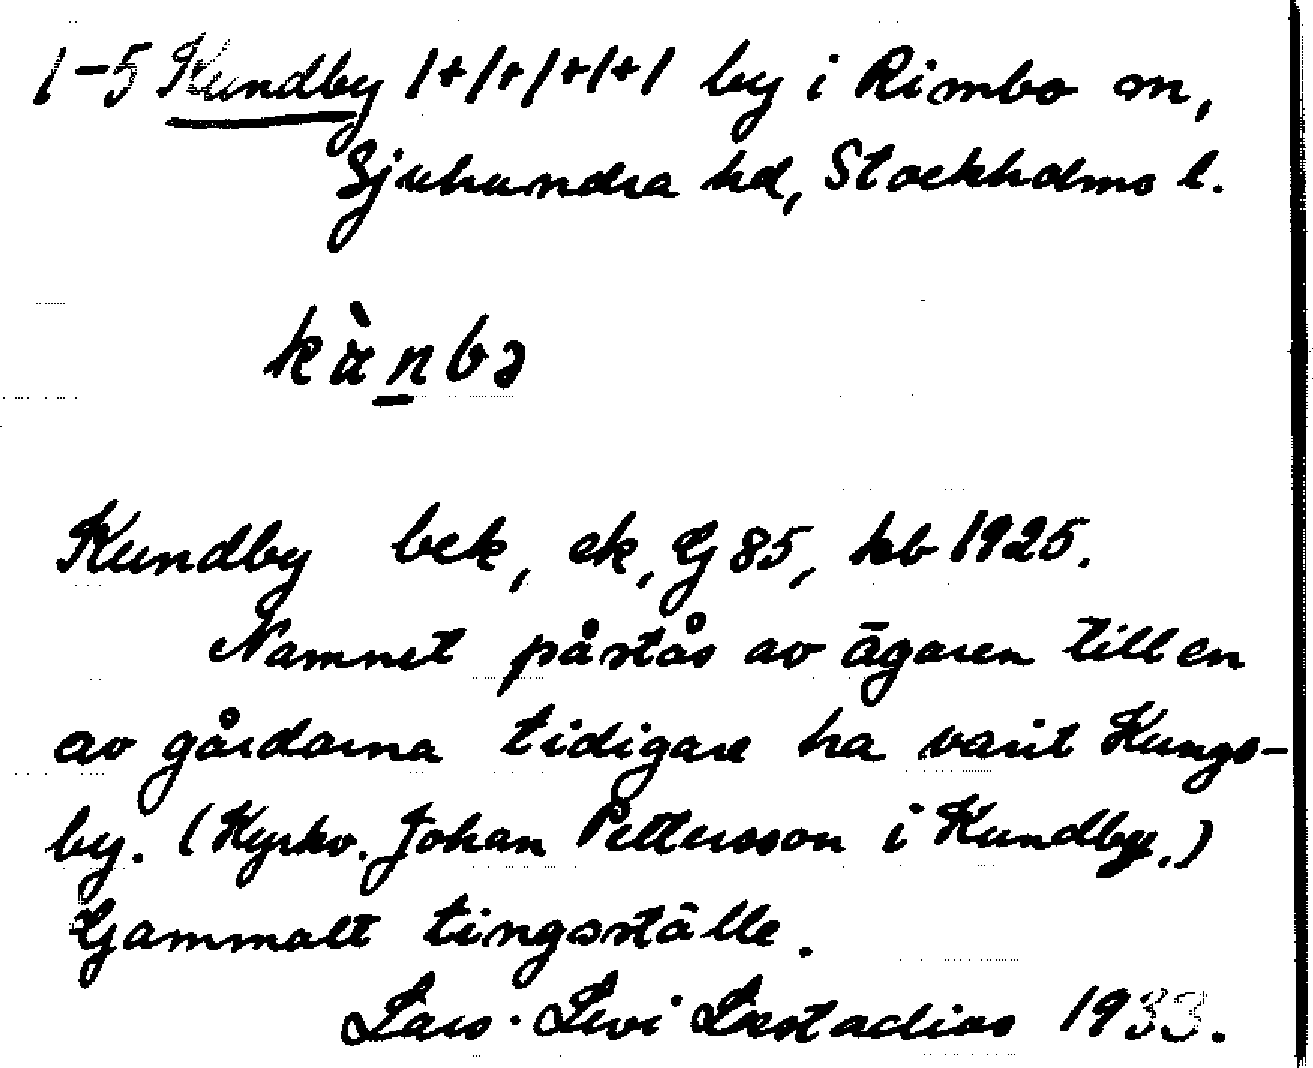 1-5 Kundby 1+1+1+1+1 by i Rimbo sn,
Sjuhundra hd, Stockholms l.
kùnbə
Kundby bck, ek, G 85, hb 1925.
Namnet påstås av ägaren till en
av gårdarna tidigare ha varit Kungs-
by. (Kyrkv. Johan Pettersson i Kundby.)
Gammalt tingsställe.
Lars-Levi Læstadius 1933.